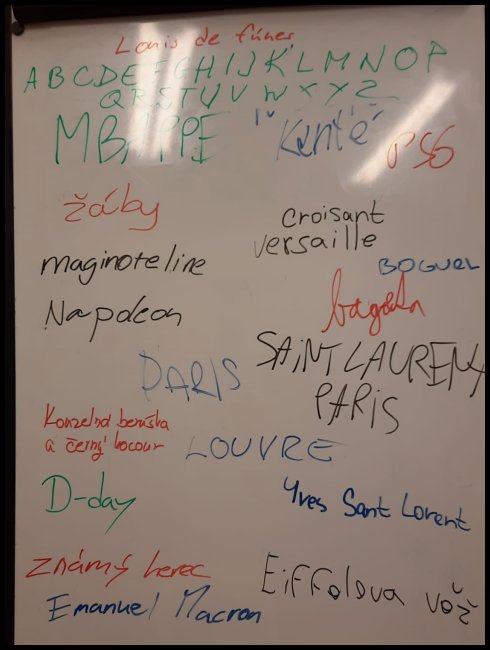 Louis de fúnes
A B C D E F G H I J K L M N O P
Q R S T U V W X Y Z
MBAPPE
Kanté
PSG
žáby
croisant
versaille
maginoteline
BOGUEL
Napoleon
bageta
SAiNT LAURENT
PARiS
PARIS
Kouzelná beruška
a černý kocour
LOUVRE
D-day
Yves Sant Lorent
Známý herec
Eiffolova vož
Emanuel Macron